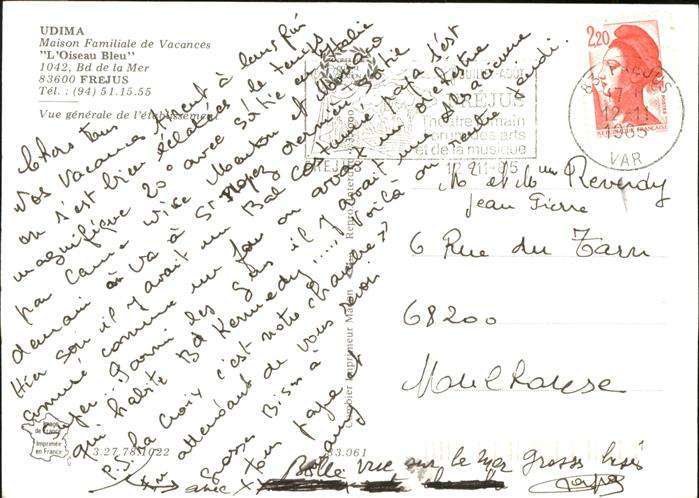 UDIMA
Maison Familiale de Vacances
"L'Oiseau Bleu"
1042, Bd de la Mer
83600 FREJUS
Tél. : (94) 51.15.55
Vue générale de l'établissement
Chers tous
Nos vacances tirent à leur fin
on s'est bien éclatées le temps
magnifique 20° avec sortie en Italie
par Canne Menton et Monaco
demain on va à St Tropez dernière sortie
Hier soir il y avait un Bal costumé papa s'est
amusé comme un fou on avait un orchestre
Super Parmi les il y avait une Alsacienne
qui habite Bd Kennedy .... Voilà on rentre jeudi.
P.S. la croix c'est notre chambre
attendant de vous revoir
Grosses Bises à
tous papa et
avec
Belle vue sur la mer grosses bises
2,20
83 FREJUS
12-11
1985
VAR
FREJUS
Théâtre romain
forum des arts
et de la musique
M. et Mme Reverdy
Jean Pierre
6 Rue du Tarn
68200
Mulhouse
Image
de France
Imprimée
en France
3.27.78.1022
83.061